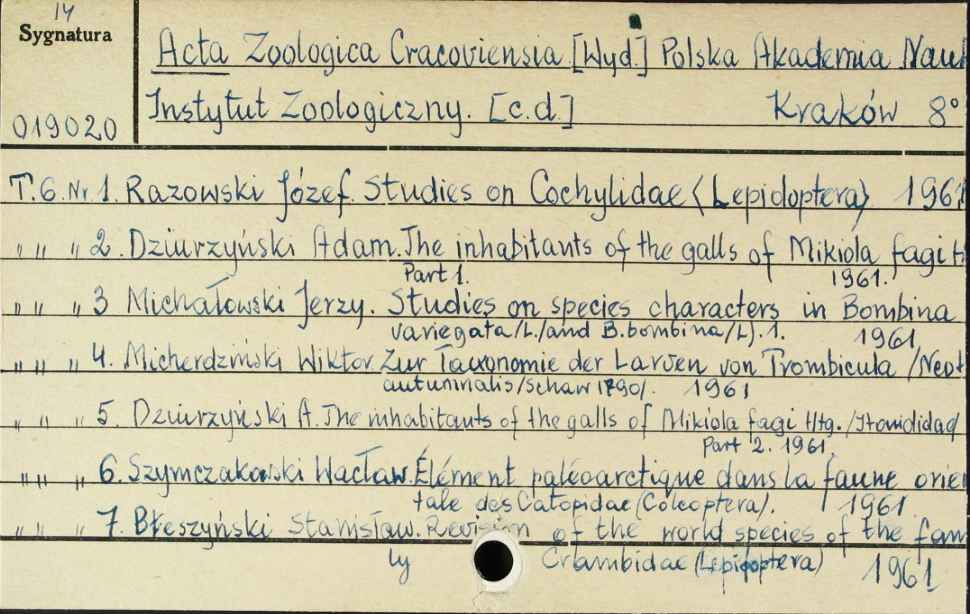 14
Sygnatura
Acta Zoologica Cracoviensia [Wyd.] Polska Akademia Nauk
Instytut Zoologiczny. [c.d.] Kraków 8°
019020
T. 6. Nr 1. Razowski Józef. Studies on Cochylidae (Lepidoptera) 1961
" " " 2. Dziurzyński Adam. The inhabitants of the galls of Mikiola fagi H
Part 1. 1961.
" " " 3 Michałowski Jerzy. Studies on species characters in Bombina
variegata /L./ and B. bombina /L/. 1. 1961
" " " 4. Micherdziński Wiktor. Zur Taxonomie der Larven von Trombicula /Neot
autumnalis /Schaw 1790/. 1961
" " " 5. Dziurzyński A. The inhabitants of the galls of Mikiola fagi Htg. /Itonididae/
Part 2. 1961.
" " " 6. Szymczakowski Wacław. Élément paléoarctique dans la faune orien
tale des Catopidae (Coleoptera). 1961
" " " 7. Błeszyński Stanisław. Revision of the world species of the fami
ly Crambidae (Lepidoptera) 1961